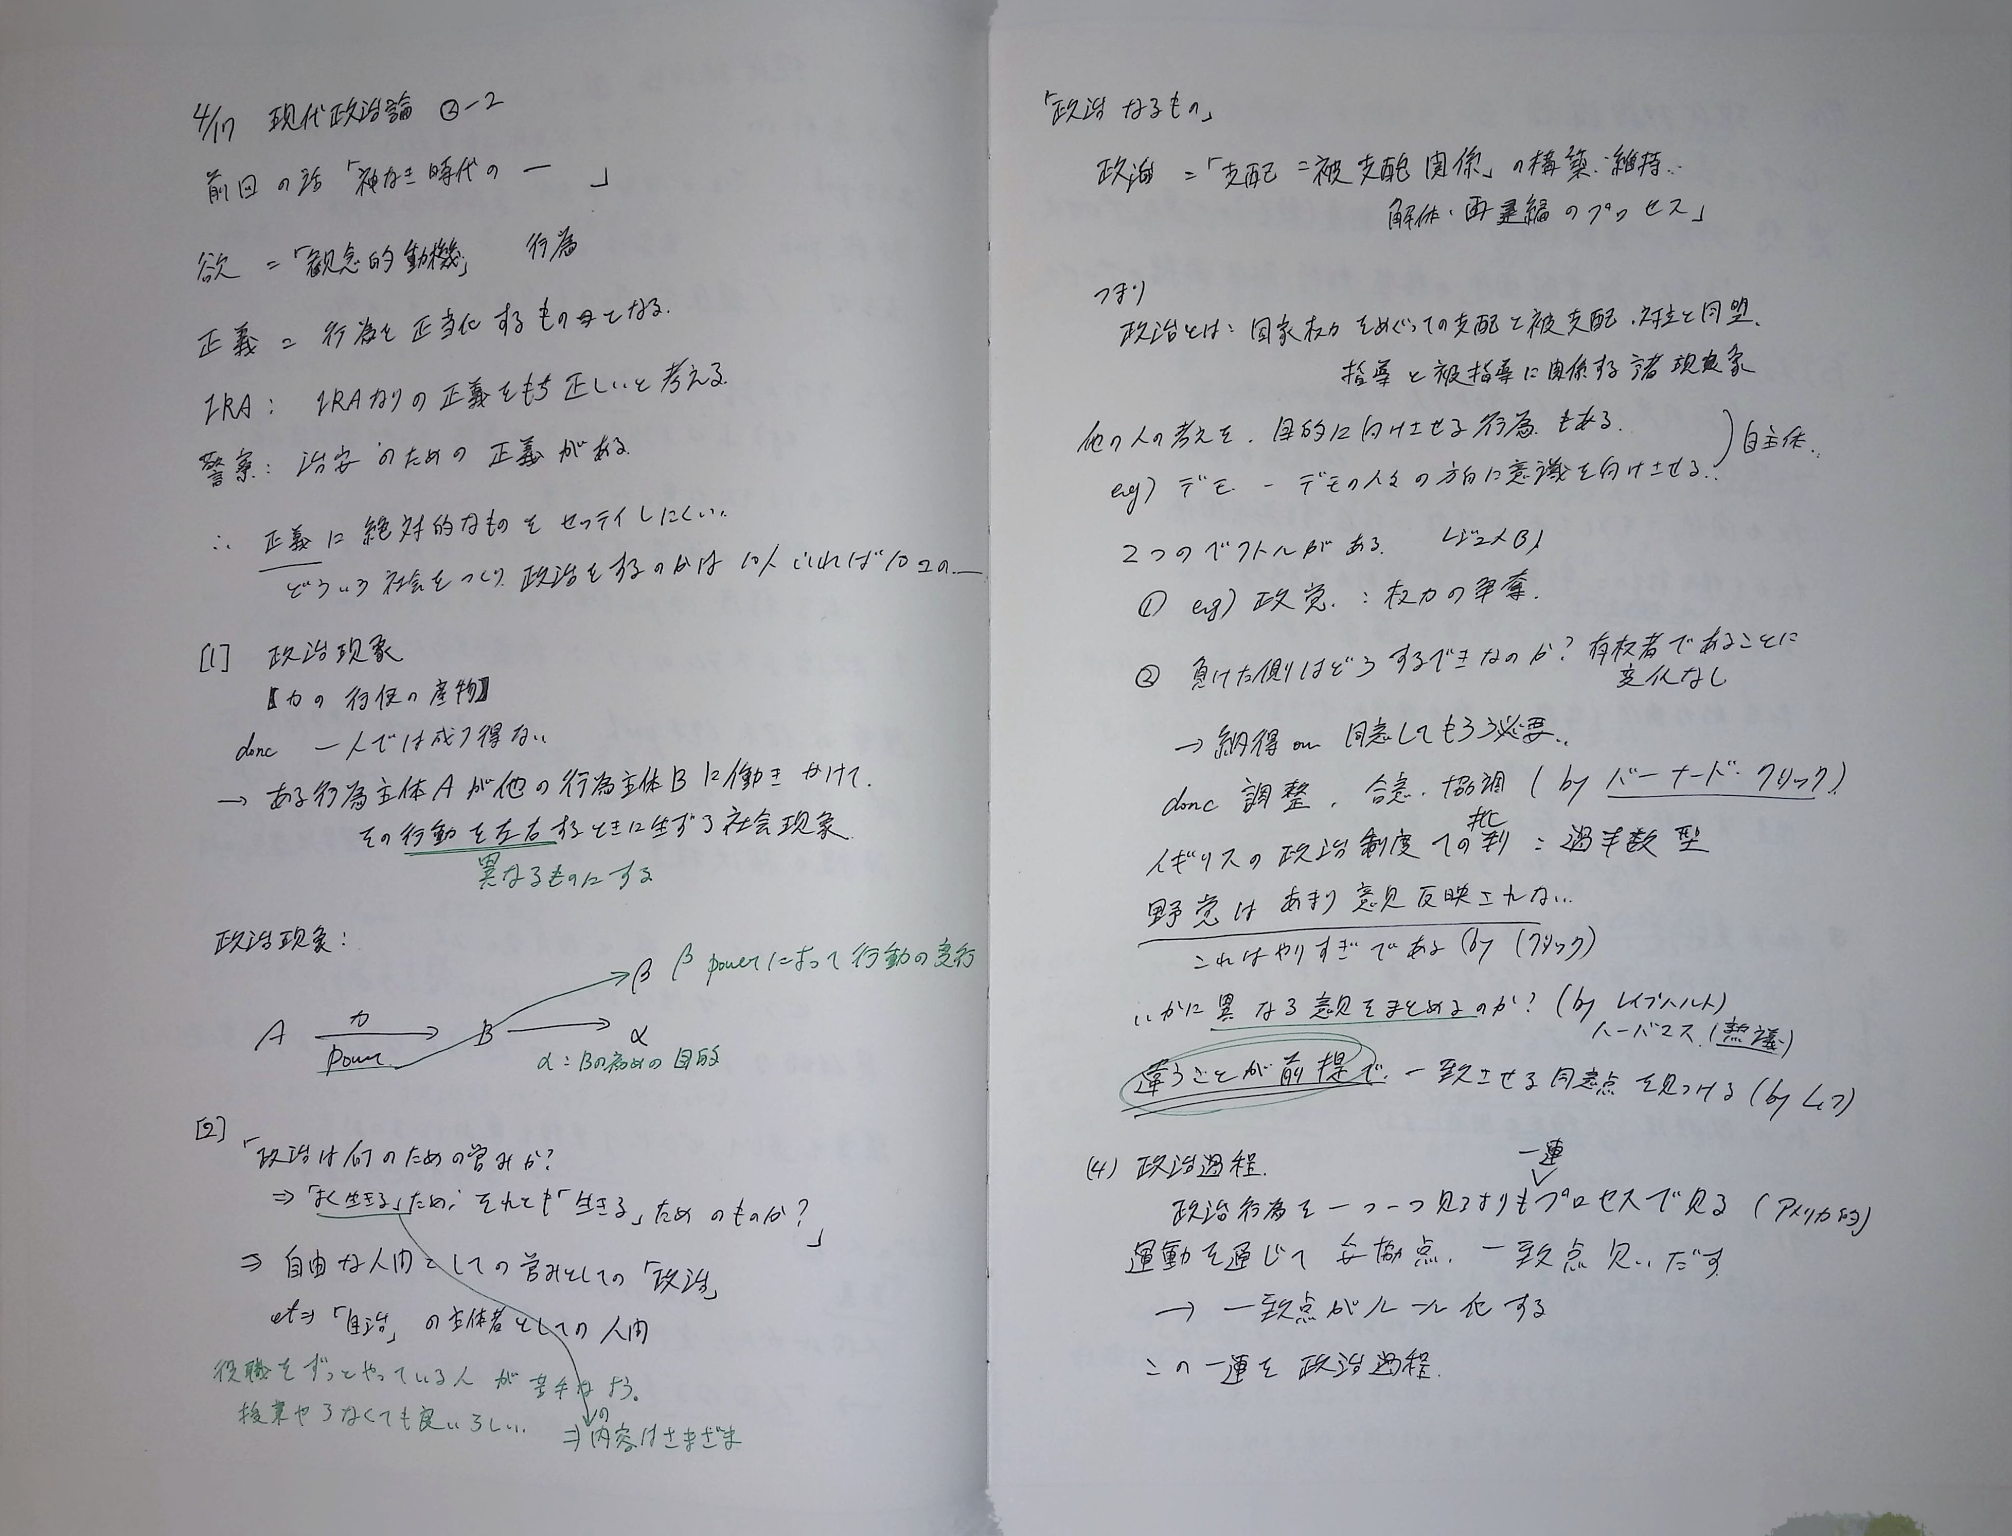 4/17 現代政治論 ②-2
前回の話「神なき時代の ー 」
欲 =「観念的動機」 行為
正義 = 行為を正当化するもの母となる.
IRA : IRAなりの正義をもち正しいと考える.
警察 : 治安のための正義がある.
∴ 正義に絶対的なものをセッテイしにくい.
どういう社会をつくり政治をするのかは10人いれば10コの—
[1] 政治現象
【力の行使の産物】
donc 一人では成り得ない
→ ある行為主体Aが他の行為主体Bに働きかけて.
その行動を左右するときに生ずる社会現象
異なるものにする
政治現象 :
β β powerによって行動の変行
A 力 power B α
α : Bの初めの目的
[2]
「政治は何のための営みか?
⇒「よく生きる」ため; それとも「生きる」ためのものか?」
⇒ 自由な人間としての営みとしての「政治」
et⇒「自治」の主体者としての人間
役職をずっとやっている人が苦手なよう。
授業やらなくても良いらしい.
⇒内容はさまざま
「政治なるもの」
政治 =「支配=被支配関係」の構築・維持・
解体・再編のプロセス」
つまり
政治とは : 国家権力をめぐっての支配と被支配・対立と同盟.
指導と被指導に関係する諸現象
他の人の考えを、目的に向けさせる行為もある.
eg) デモ - デモの人々の方向に意識を向けさせる. ) 自主体.
2つのベクトルがある. レジュメB)
① eg) 政党. : 権力の争奪.
② 負けた側はどうするできなのか? 有権者であることに
変化なし
→ 納得 ou 同意してもらう必要.
donc 調整、合意・協調 ( by バーナード・クリック)
イギリスの政治制度ての批判 : 過半数型
野党はあまり意見反映されない..
これはやりすぎである (by (クリック)
いかに異なる意見をまとめるのか? (by レイプハルト)
ハーバマス. (熟議)
違うことが前提で、一致させる同意点を見つける (by レイプ)
(4) 政治過程.
一連
政治行為を一つ一つ見るよりもプロセスで見る (アメリカ的)
運動を通じて妥協点、一致点見いだす
→ 一致点がルール化する
この一連を政治過程.